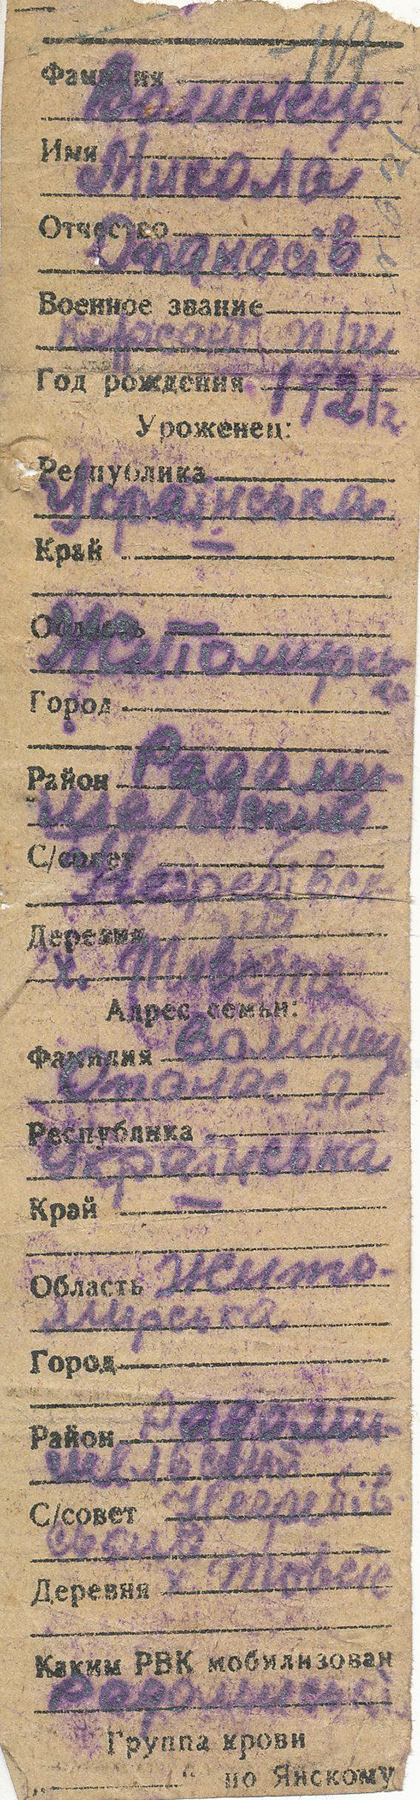 Фамилия
Волинець
Имя
Микола
Отчество
Опанасів
Военное звание
Курсант
Год рождения 1921 г.
Уроженец:
Республика
Українська
Край —
Область —
Житомирсь
Город
Район Радоми-
шельський
С/совет
Негребівсь-
Деревня
х.
Адрес семьи:
Фамилия Волинець
Опанас
Республика
Українська
Край —
Область Жито-
мирська
Город
Район Радоми-
шельський
С/совет Негребів-
ський
Деревня х
Каким РВК мобилизован
Группа крови
„ “ по Янскому